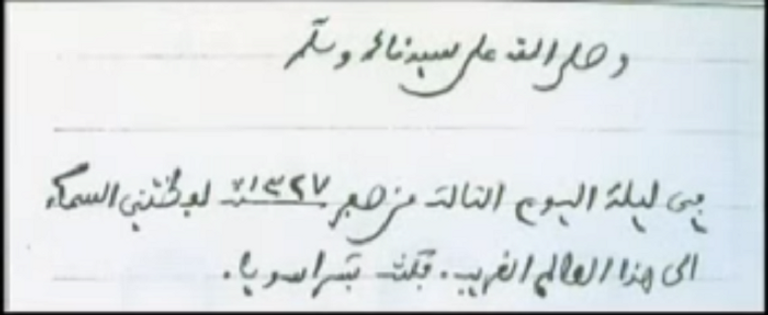 وصلى الله على سيدنا محمد وسلم
في ليلة اليوم الثالث من صفر ١٣٢٧ لفظتني السماء
الى هذا العالم الغريب. فكنت بشرا سويا.